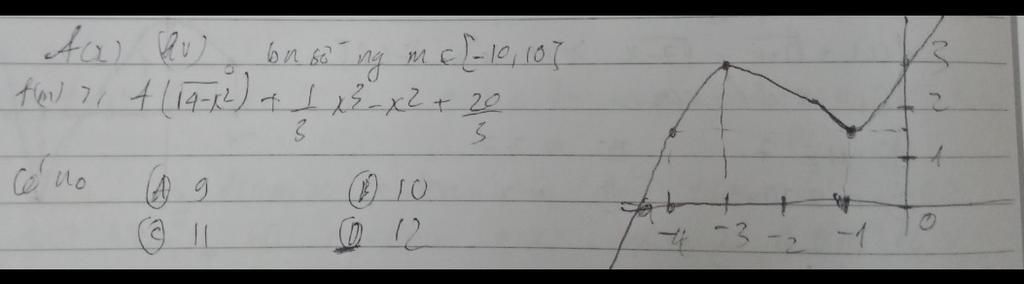 f(x) (hv) bn số ng m ∈ [-10, 10]
f(m) ≥ f(√4-x²) + 1/3 x³ - x² + 20/3
Có no Ⓐ 9 Ⓑ 10
Ⓒ 11 Ⓓ 12
3
2
1
-4 -3 -2 -1 0